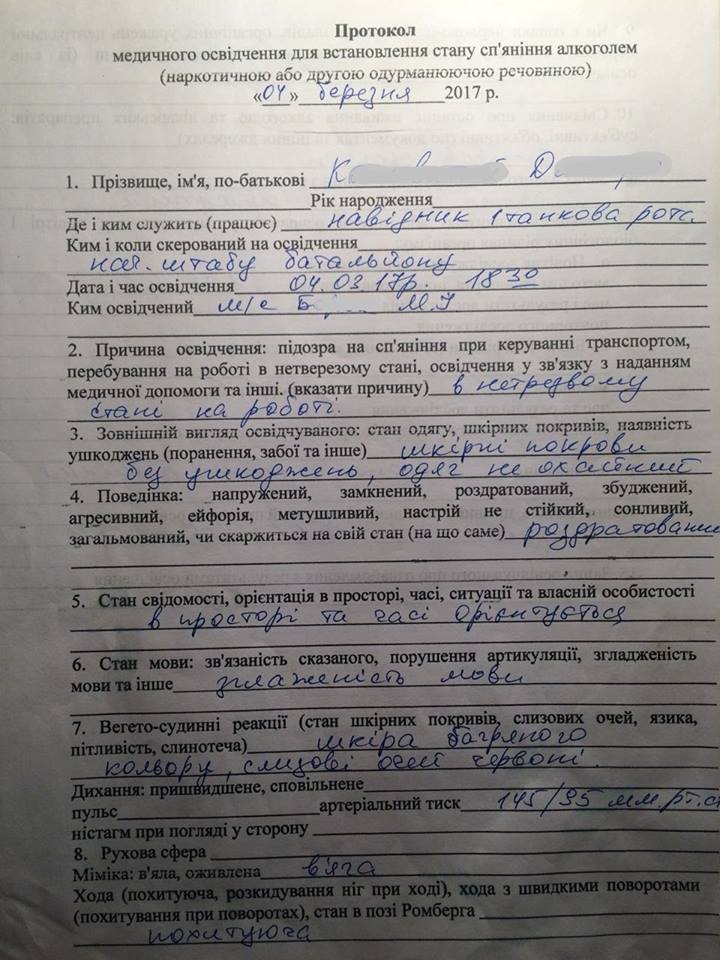 Протокол
медичного освідчення для встановлення стану сп'яніння алкоголем
(наркотичною або другою одурманюючою речовиною)
«04» березня 2017 р.
1. Прізвище, ім'я, по-батькові К Д
Рік народження
Де і ким служить (працює) навідник 1 танкова рота
Ким і коли скерований на освідчення
нач. штабу батальйону
Дата і час освідчення 04.03.17р. 18 30
Ким освідчений м/с Б М.І
2. Причина освідчення: підозра на сп'яніння при керуванні транспортом,
перебування на роботі в нетверезому стані, освідчення у зв'язку з наданням
медичної допомоги та інші. (вказати причину) в нетрезвому
стані на роботі.
3. Зовнішній вигляд освідчуваного: стан одягу, шкірних покривів, наявність
ушкоджень (поранення, забої та інше) шкірні покрови
без ушкоджень, одяг не охайний
4. Поведінка: напружений, замкнений, роздратований, збуджений,
агресивний, ейфорія, метушливий, настрій не стійкий, сонливий,
загальмований, чи скаржиться на свій стан (на що саме) роздратований
5. Стан свідомості, орієнтація в просторі, часі, ситуації та власній особистості
в просторі та часі орієнтується
6. Стан мови: зв'язаність сказаного, порушення артикуляції, згладженість
мови та інше зглаженість мови
7. Вегето-судинні реакції (стан шкірних покривів, слизових очей, язика,
пітливість, слинотеча) шкіра багряного
кольору, слизові очей червоні.
Дихання: пришвидшене, сповільнене
пульс артеріальний тиск 145/95 мм.рт.ст
ністагм при погляді у сторону
8. Рухова сфера
Міміка: в'яла, оживлена в'яла
Хода (похитуюча, розкидування ніг при ході), хода з швидкими поворотами
(похитування при поворотах), стан в позі Ромберга
похитуюча